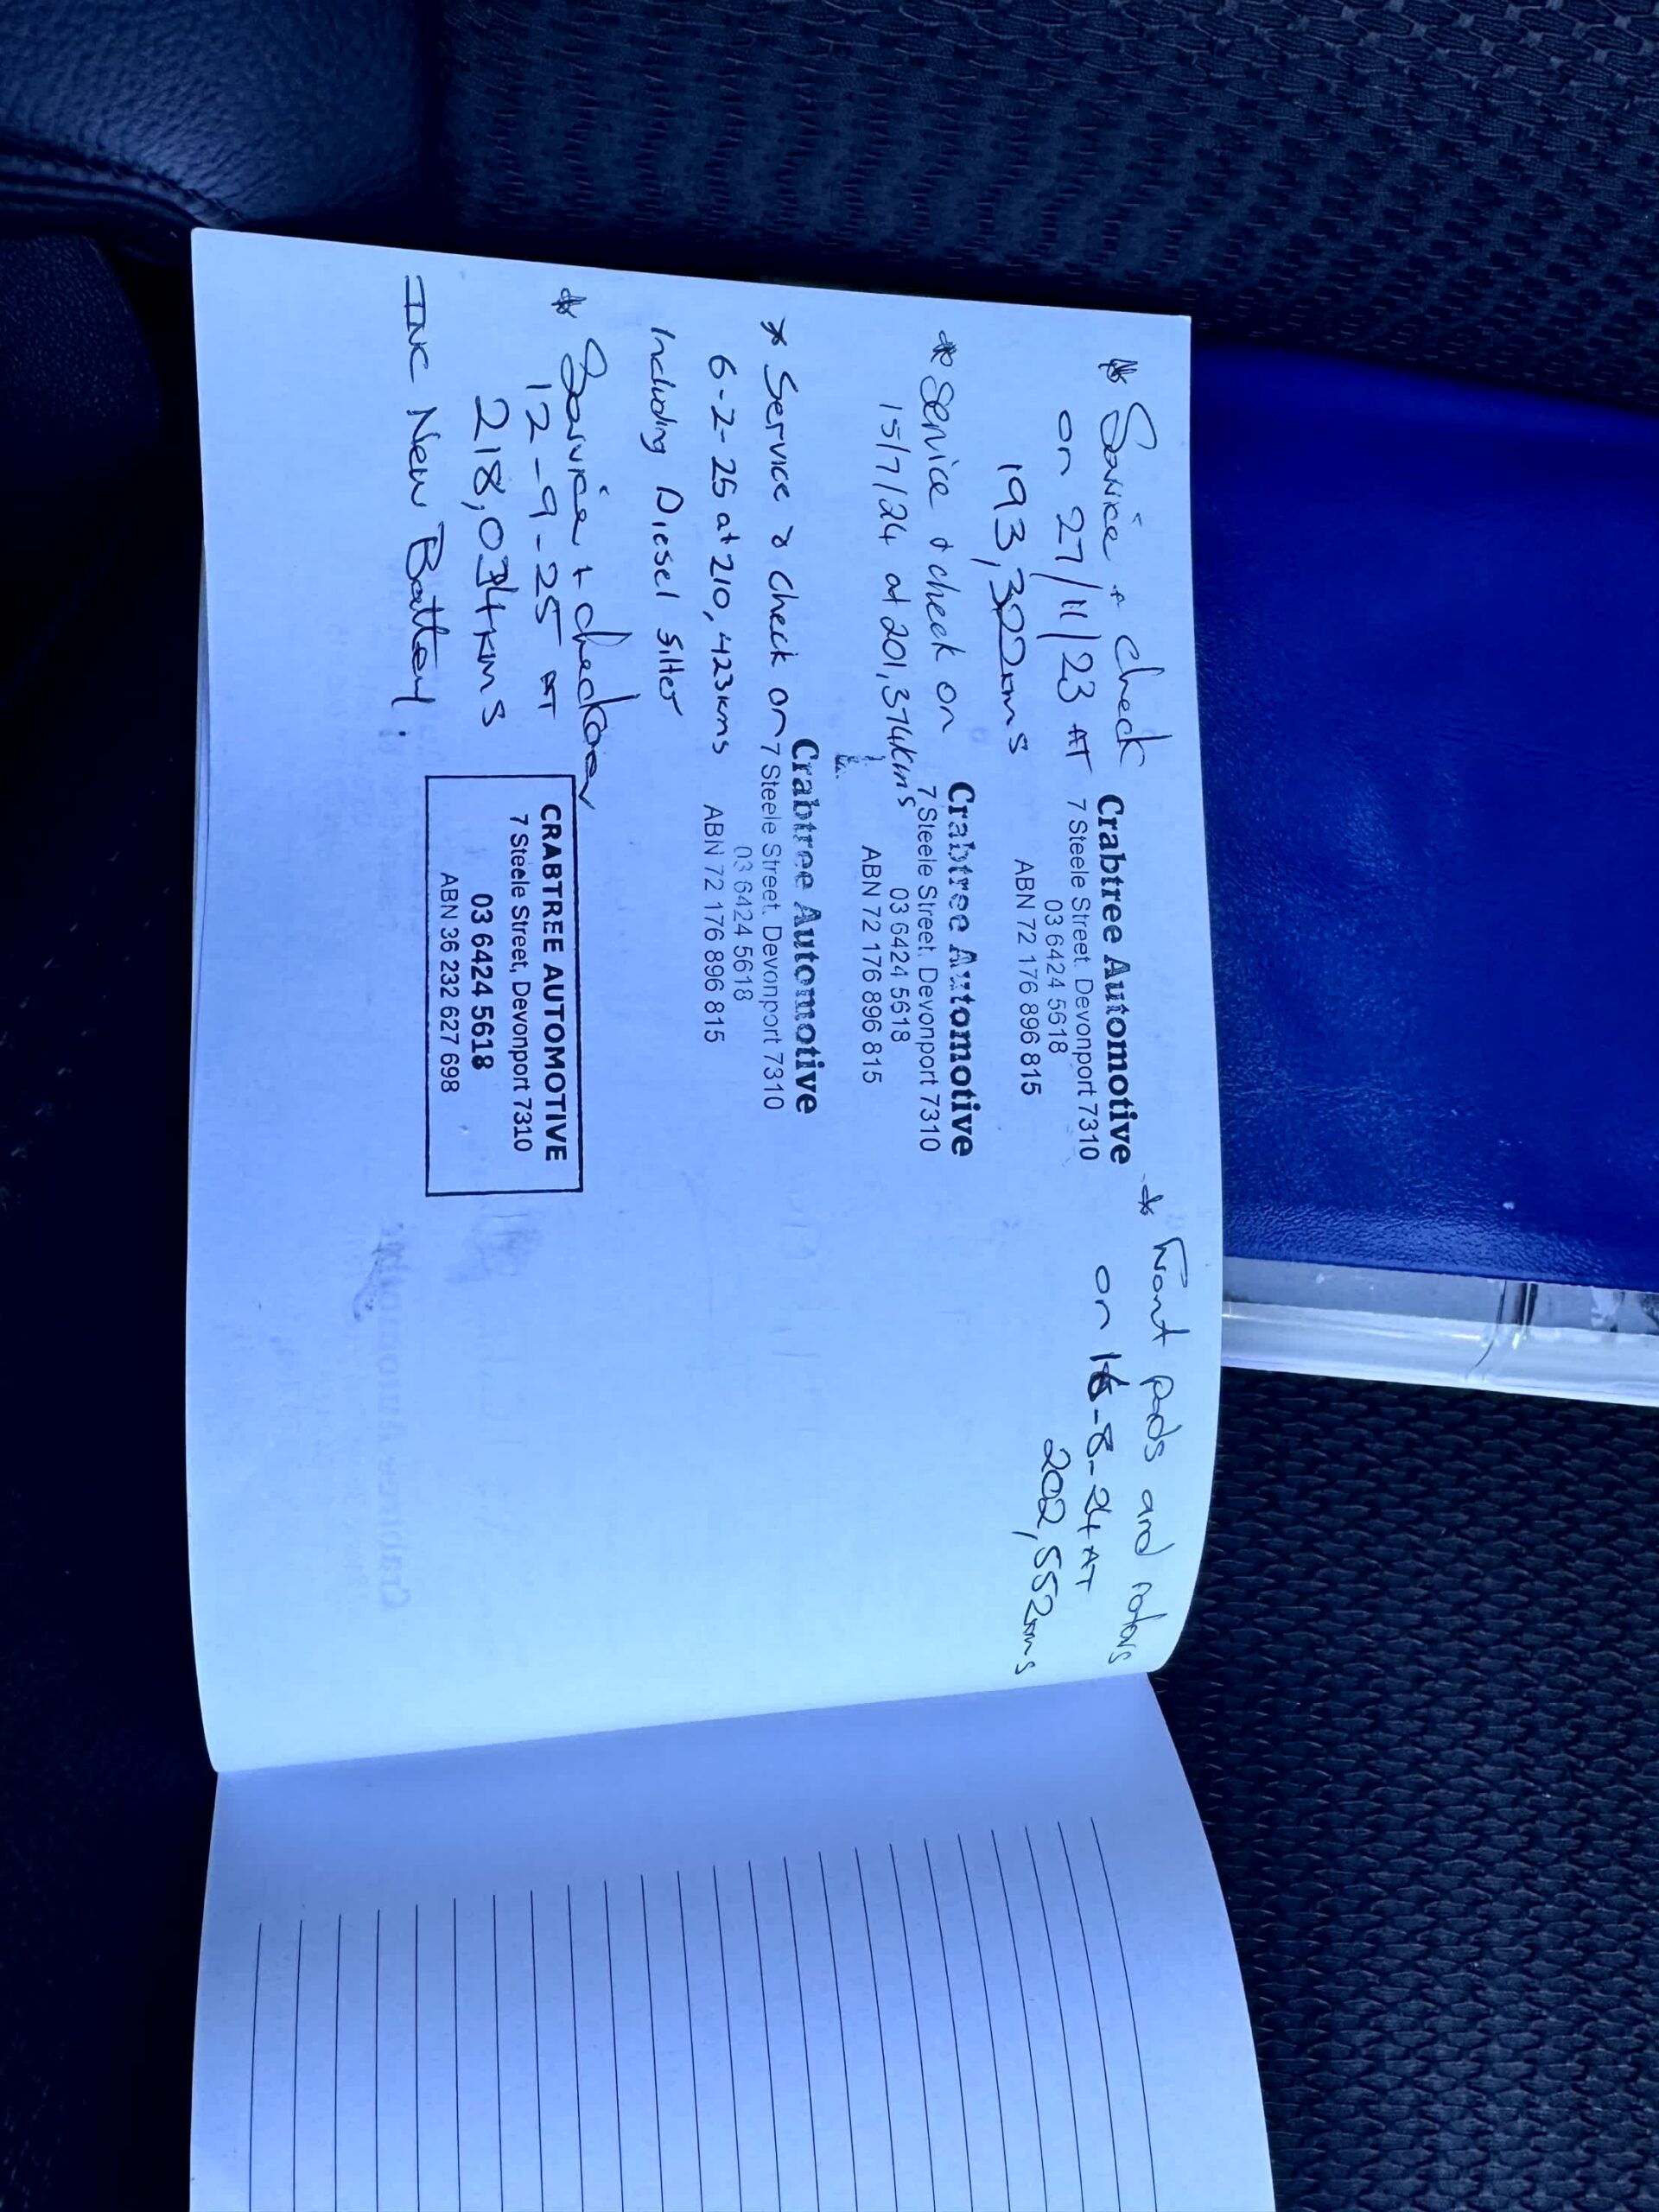 * Service + check
on 27/11/23 AT
193,392kms
Crabtree Automotive
7 Steele Street. Devonport 7310
03 6424 5618
ABN 72 176 896 815
* Front pads and rotors
on 16-8-24 AT
202,552kms
* Service & check on
15/7/24 at 201,374kms
Crabtree Automotive
7 Steele Street. Devonport 7310
03 6424 5618
ABN 72 176 896 815
* Service & check on
6-2-25 at 210,423kms
Including Diesel filter
Crabtree Automotive
7 Steele Street. Devonport 7310
03 6424 5618
ABN 72 176 896 815
* Service + check
12-9-25 AT
218,034kms
INC New Battery.
CRABTREE AUTOMOTIVE
7 Steele Street, Devonport 7310
03 6424 5618
ABN 36 232 627 698